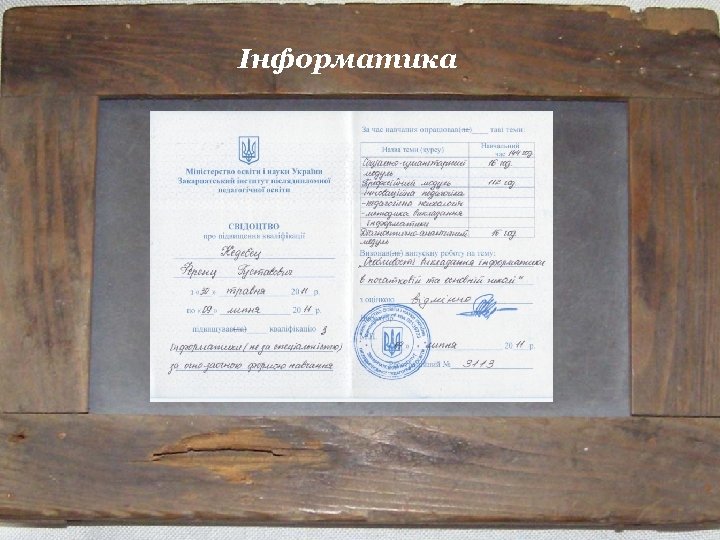 Інформатика
Міністерство освіти і науки України
Закарпатський інститут післядипломної
педагогічної освіти
СВІДОЦТВО
про підвищення кваліфікації
Ференц Густавович
з «30» травня 2011 р.
по «09» липня 2011 р.
підвищував(ла) кваліфікацію з
Інформатики (не за спеціальністю)
за очно-заочною формою навчання
За час навчання опрацював(ла) такі теми:
Назва теми (курсу)
Навчальний
час 144 год.
Соціально-гуманітарний
модуль
16 год.
Професійний модуль
112 год
- інноваційна педагогіка
- педагогічна психологія
- методика викладання
інформатики
Діагностично-аналітичний
модуль
16 год.
Виконав(ла) випускну роботу на тему:
„Особливості викладання інформатики
в початковій та основній школі"
з оцінкою Відмінно
липня 2011 р.
№ 3113